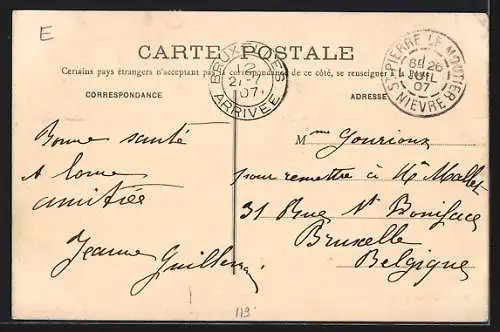 E
CARTE POSTALE
Certains pays étrangers n'acceptant pas la correspondance de ce côté, se renseigner à la
CORRESPONDANCE
ADRESSE
BRUXELLES
ARRIVEE
07
ST PIERRE LE MOUTIER
26
JUIL
07
NIEVRE
Bonne santé
A
amitiée
Jeanne
Mme Gourioux
pour remettre à Mr Mallet
31 Rue St Boniface
Bruxelle
Belgique
119